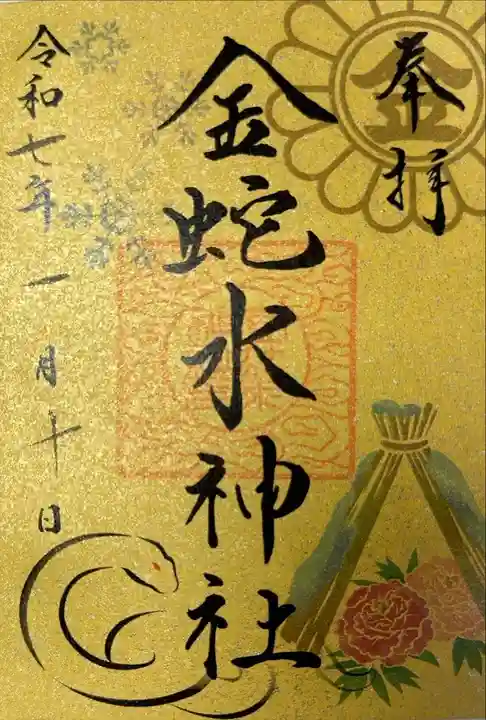 奉拝
金蛇水神社
令和七年一月十日